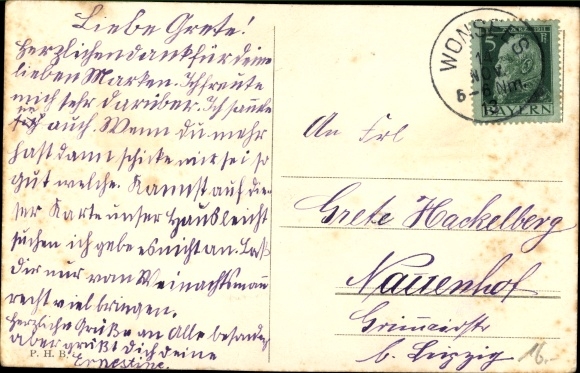 Liebe Grete!
Herzlichen dank für deine
lieben Marken. Ich freute
mich sehr darüber. Ich samle
auch. Wenn du mehr
hast dann schicke mir sei so
gut welche. Kannst auf die
ser Karte unser Haus leicht
suchen ich gebe es nicht an. Laß
dir nur vom Weinachtsmann
recht viel bringen.
Herzliche Grüße an Alle besonders
aber grüßt dich deine
Ernestine.
P. H. B.
WONSEES
14
NOV.
5-6 Nm.
5
BAYERN
An Frl
Grete Hackelberg
Nauenhof
b. Leipzig
16.